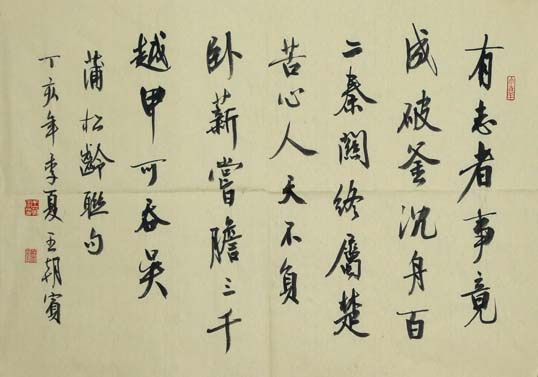 有志者事竟
成破釜沉舟百
二秦關终属楚
苦心人天不負
卧薪嘗膽三千
越甲可吞吴
蒲松龄聯句
丁亥年李夏王朝賓